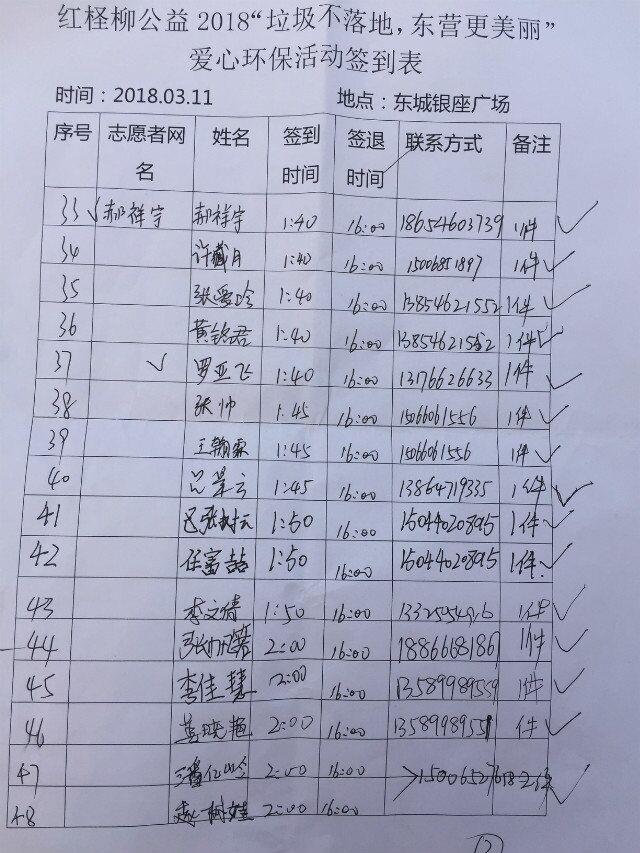 红柽柳公益 2018“垃圾不落地，东营更美丽”
爱心环保活动签到表
时间：2018.03.11 地点：东城银座广场
序号 志愿者网名 姓名 签到时间 签退时间 联系方式 备注
33 ✓ 郝祥宇 郝祥宇 1:40 16:00 18654603739 1件 ✓
34 1:40 16:00 15006851897 1件 ✓
35 1:40 16:00 13854621552 1件 ✓
36 1:40 16:00 1件 ✓
37 ✓ 罗亚飞 1:40 16:00 13176626633 1件 ✓
38 张帅 1:45 16:00 15066061556 1件 ✓
39 1:45 16:00 15066061556 1件 ✓
40 1:45 16:00 13864719335 1件 ✓
41 1:50 16:00 15044020895 1件 ✓
42 任富喆 1:50 16:00 15044020895 1件 ✓
43 李文倩 1:50 16:00 1件 ✓
44 2:00 16:00 1件 ✓
45 李佳慧 2:00 16:00 13589989559 1件 ✓
46 2:00 16:00 件 ✓
47 2:00 16:00
48 赵树娃 2:00 16:00 ✓